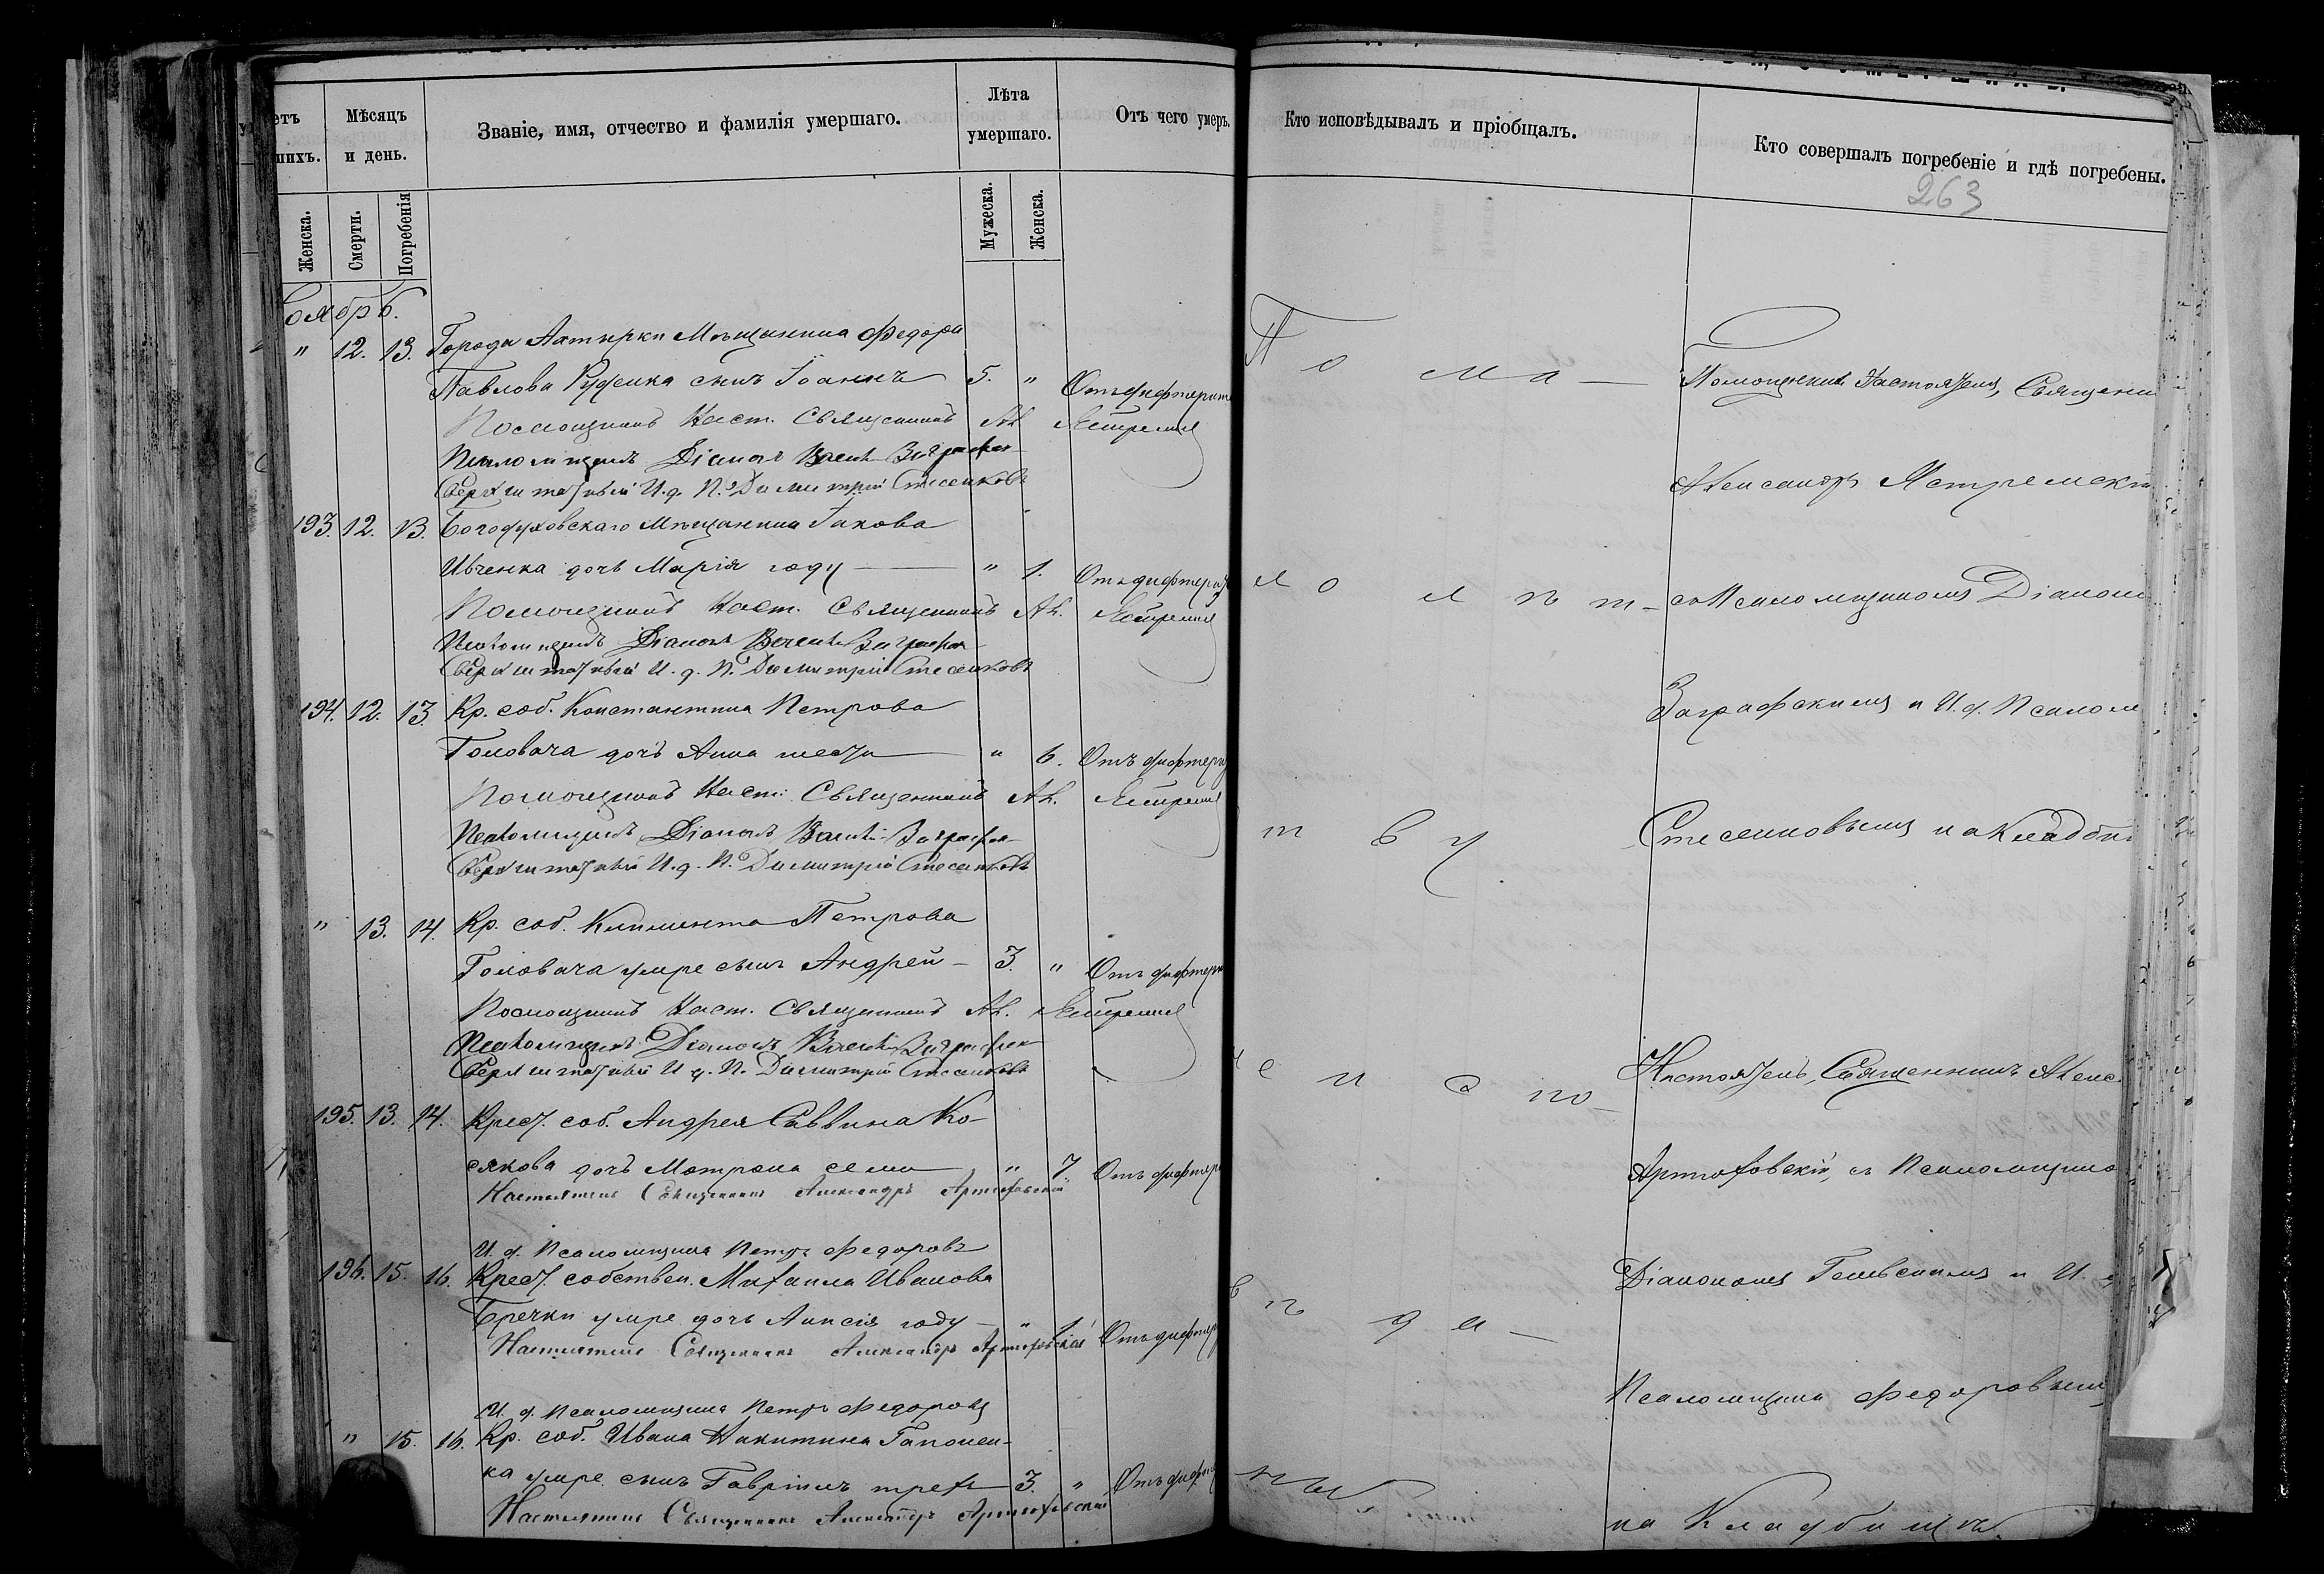 Мѣсяцъ и день.
Званіе, имя, отчество и фамилія умершаго.
Лѣта умершаго.
Отъ чего умеръ.
Женска.
Смерти.
Погребенія
Мужеска.
Женска.
оябрь.
" 12. 13. Города Ахтырки Мѣщанина Федора
Павлова Руденка сынъ Іоаннъ 5. " Отъ дифтерита
Помощникъ Наст. Священникъ Ал. Ястремск
Псаломщикъ Діаконъ Заграфск
Сверхштатный И. д. П. Димитрій Стесенковъ
193. 12. 13. Богодуховскаго Мѣщанина Іакова
Ивченка дочь Марія году " 1. Отъ дифтери
Помощникъ Наст. Священникъ Ал. Ястремск
Псаломщикъ Діаконъ Заграфск
Сверхштатный И. д. П. Димитрій Стесенковъ
194. 12. 13. Кр. соб. Константина Петрова
Головача дочь Анна шести " 6. Отъ дифтери
Помощникъ Наст. Священникъ Ал. Ястремск
Псаломщикъ Діаконъ Заграфск
Сверхштатный И. д. П. Димитрій Стесенковъ
" 13. 14. Кр. соб. Климента Петрова
Головача умре сынъ Андрей 3. " Отъ дифтери
Помощникъ Наст. Священникъ Ал. Ястремск
Псаломщикъ Діаконъ Заграфск
Сверхштатный И. д. П. Димитрій Стесенковъ
195. 13. 14. Крест. соб. Андрея Саввина Ко-
сякова дочь Матрона семи " 7. Отъ дифтер
Настоятель Священникъ Александръ Артюховскій
И. д. Псаломщика Петръ Федоровъ
196. 15. 16. Крест. собствен. Михаила Иванова
Бречки умре дочь Анисія году " 1. Отъ дифтер
Настоятель Священникъ Александръ Артюховскій
И. д. Псаломщика Петръ Федоровъ
" 15. 16. Кр. соб. Ивана Никитина Гапонен-
ка умре сынъ Гавріилъ трехъ 3. " Отъ диф
Настоятель Священникъ Александръ Артюховскій
Кто исповѣдывалъ и пріобщалъ.
Кто совершалъ погребеніе и гдѣ погребены.
263
По ма-
лолѣт-
тву
Помощникъ Настоятеля, Священни
Александръ Ястремскі
съ Псаломщикомъ Діакономъ
Заграфскимъ и И. д. Псалом
Стесенковымъ на Кладби
Настоятель, Священникъ Алекс
Артюховскій, съ Псаломщико
Діакономъ и И. д
Псаломщика Федоровымъ
на Кладбищѣ.